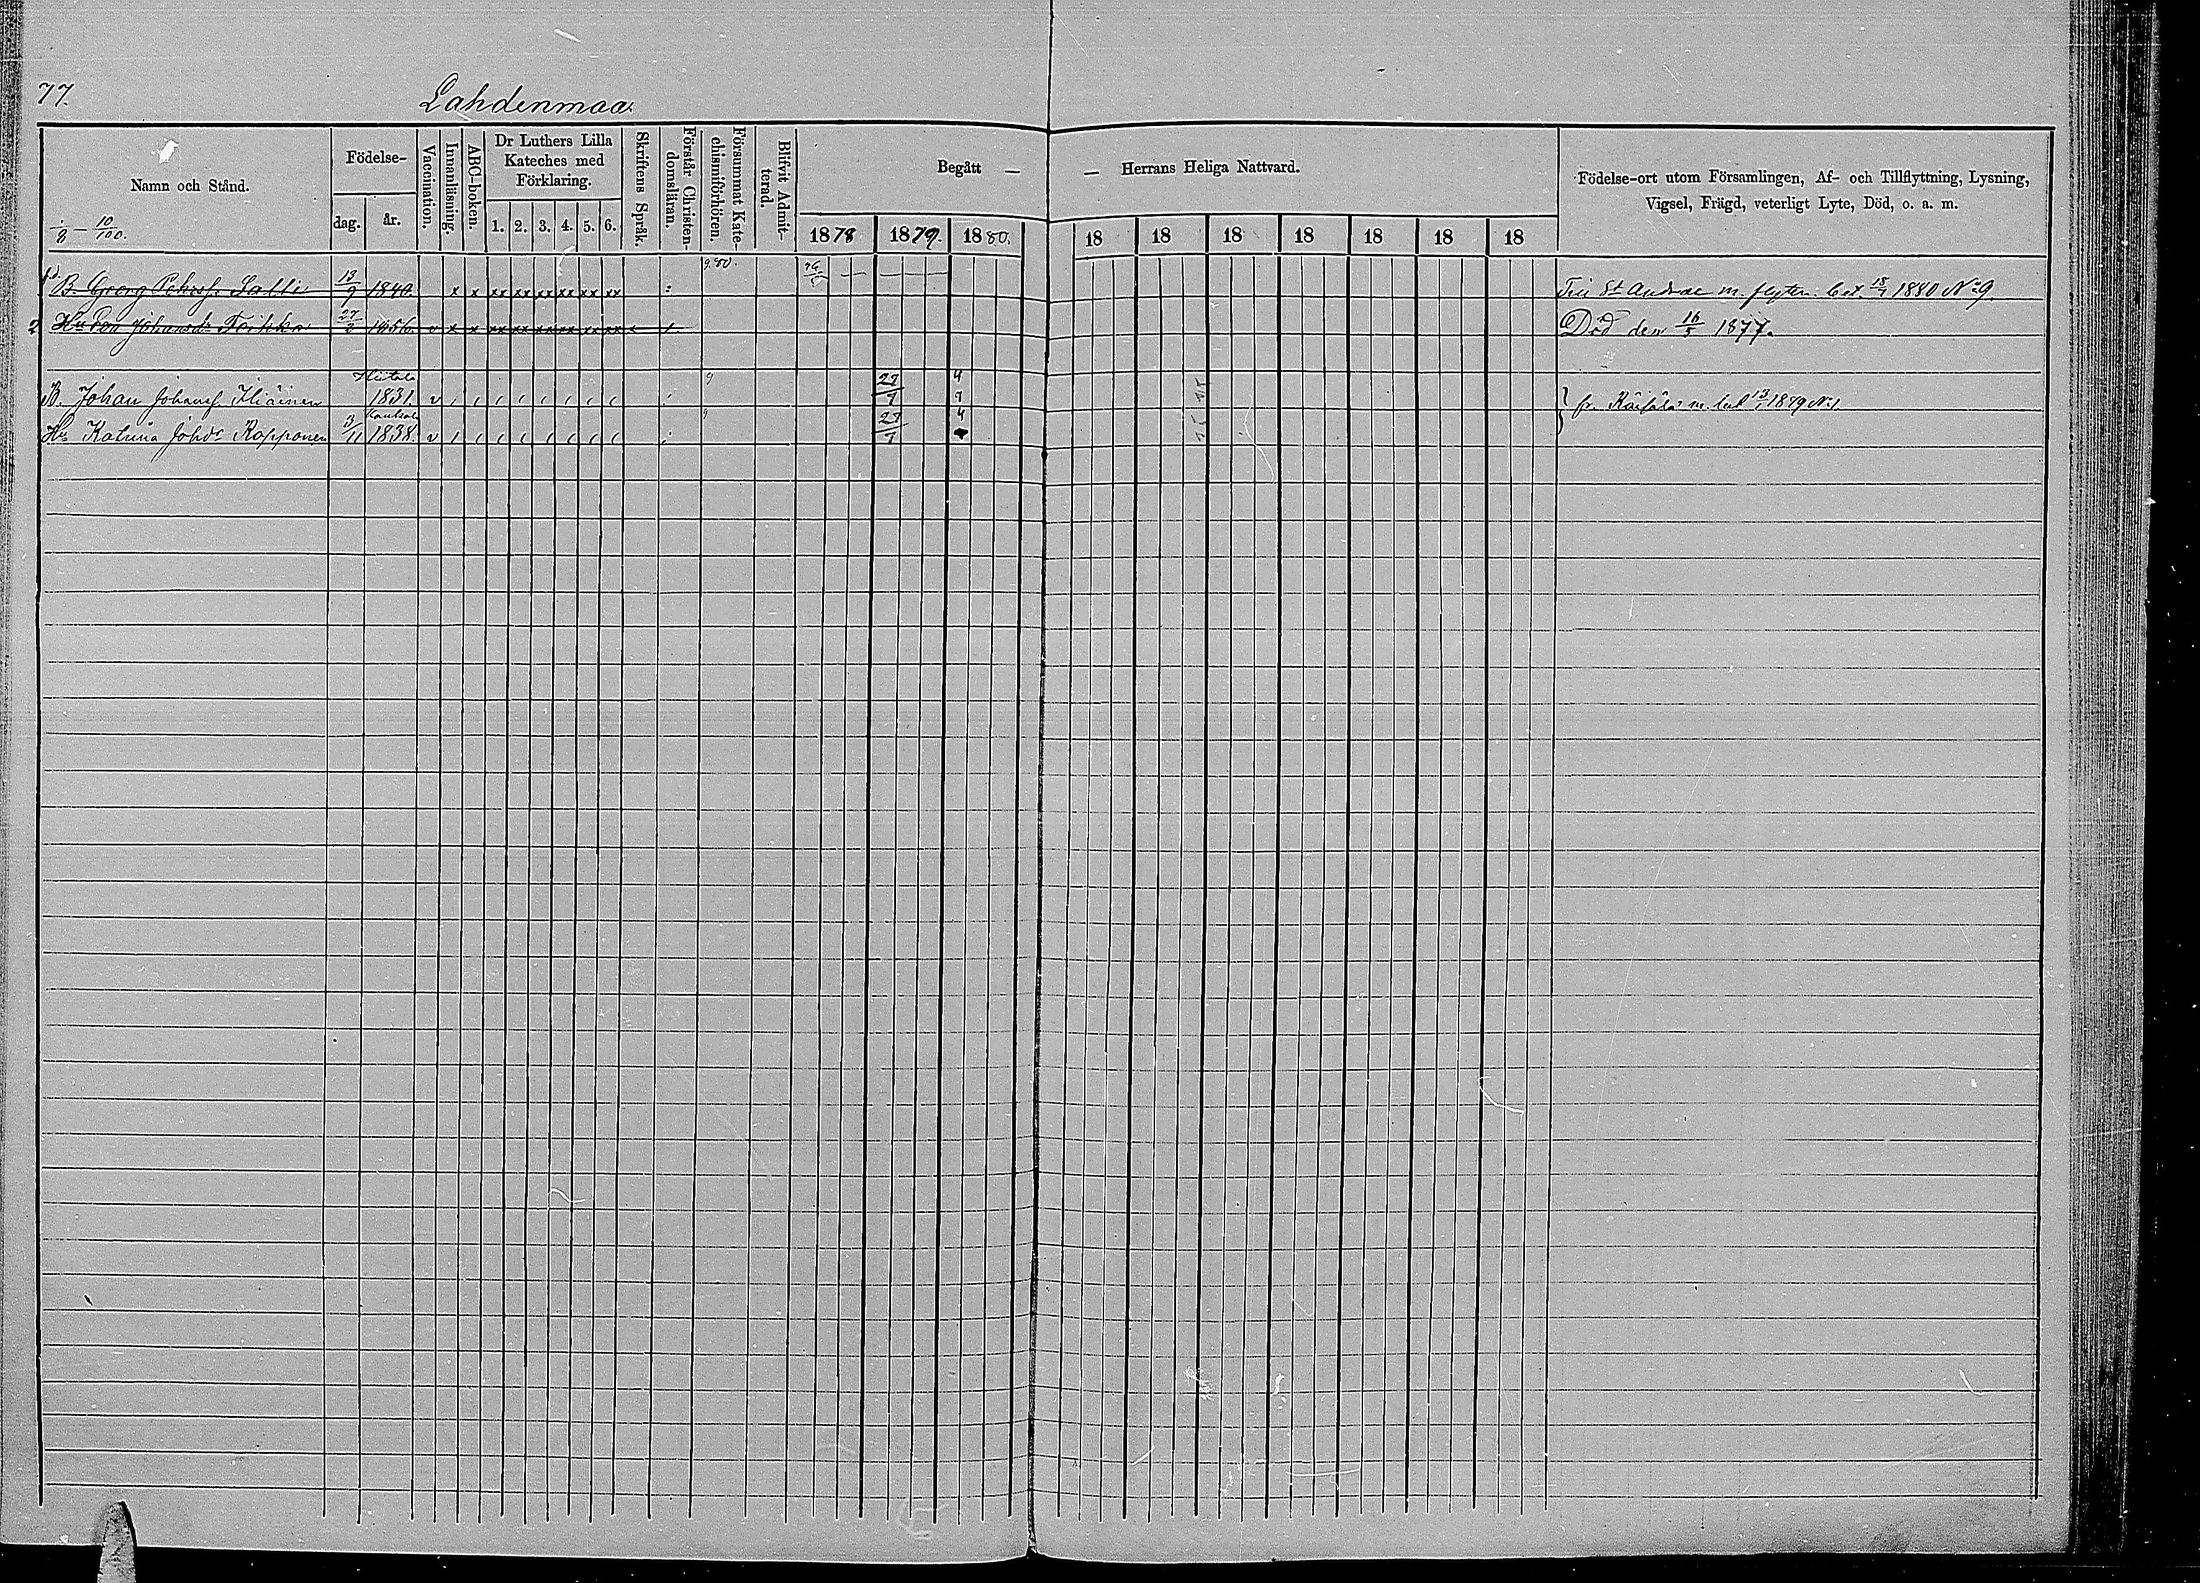 77.
Lahdenmaa.
Namn och Stånd.
Födelse-
dag. år.
Vaccination.
Innanläsning.
ABC-boken.
Dr Luthers Lilla Kateches med Förklaring.
1. 2. 3. 4. 5. 6.
Skriftens Språk.
Förstår Christendomsläran.
Försummat Katechismiförhören.
Blifvit Admitterad.
Begått — — Herrans Heliga Nattvard.
1878 1879. 1880. 18 18 18 18 18 18 18
Födelse-ort utom Församlingen, Af- och Tillflyttning, Lysning,
Vigsel, Frägd, veterligt Lyte, Död, o. a. m.
10/100.
B. Georg Pehrss. Salli 13/9 1840. x x xx xx xx xx xx xx Till St Andreæ m. flyttn. bet. 1880 No 9.
2 Johansdr 27/2 1856. v x x xx xx xx xx xx xx Död den 16/5 1877.
Hiitola
B. Johan Johanss. 1831. v 9 27/1 4 fr. m. bet 13/1 1879 No 1.
Hu Katrina Johdr Kopponen 3/11 1838. v 9 27/1 4